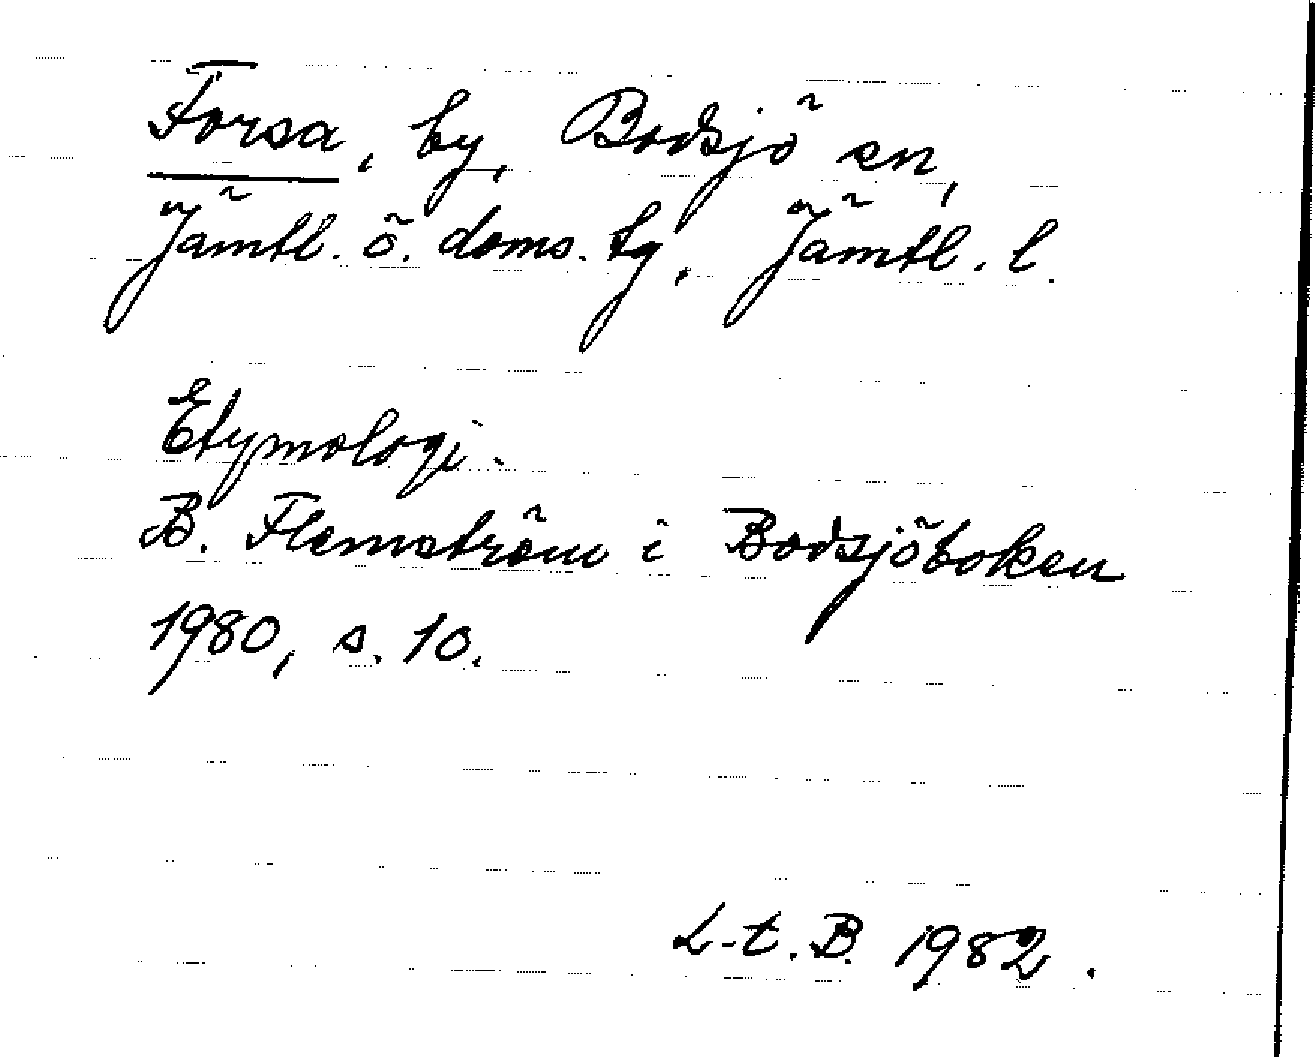 Forsa, by, Bodsjö sn,
Jämtl. ö. doms. tg. Jämtl. l.
Etymologi.
B. Flemström i Bodsjöboken
1980, s. 10.
L-t. B. 1982.